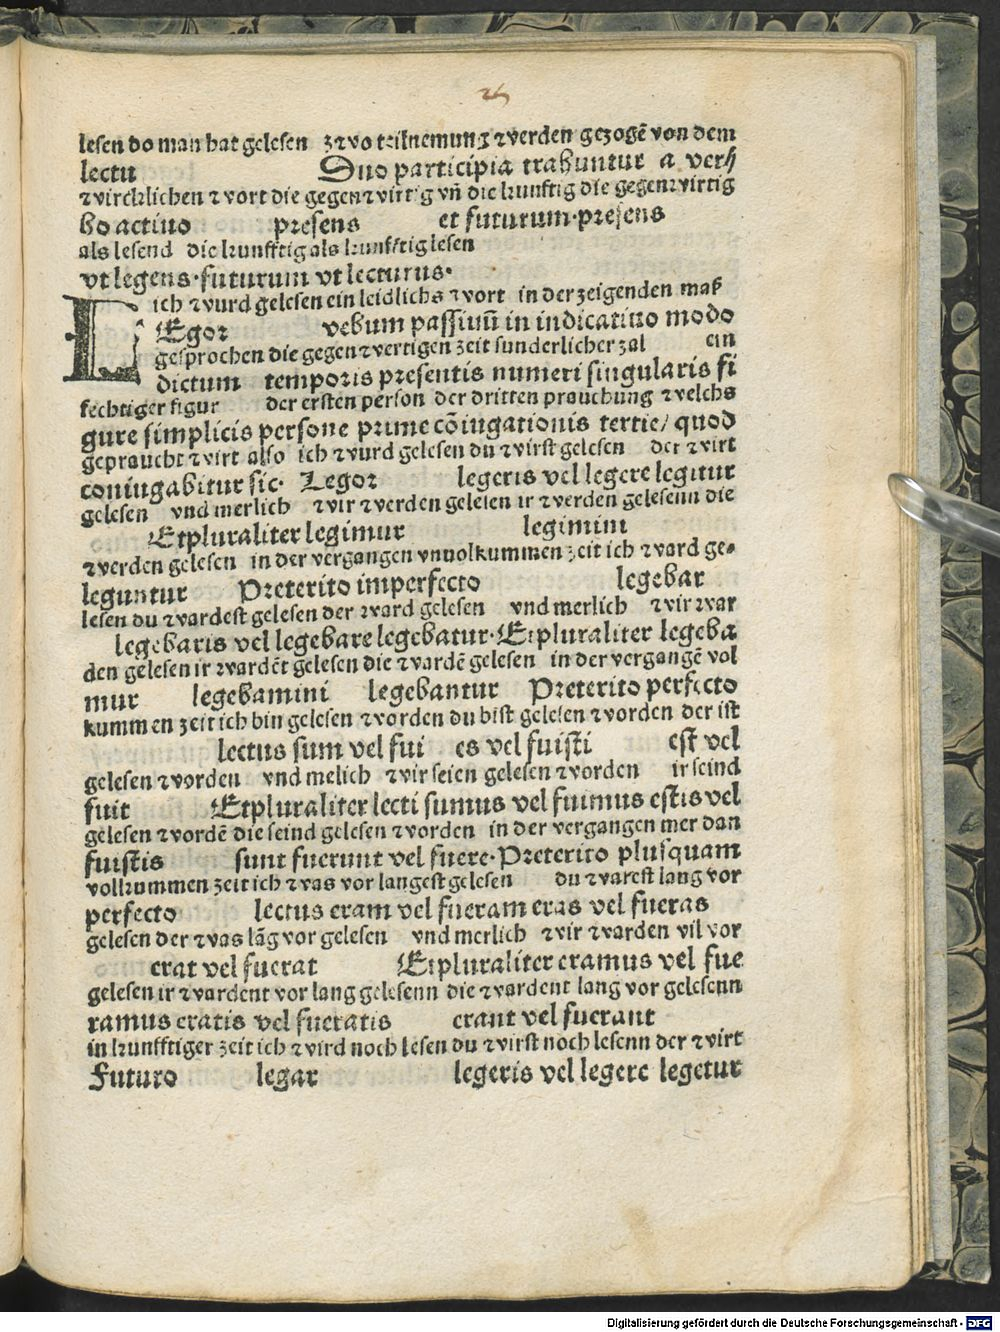 26
lesen do man hat gelesen zwo teilnemung werden gezogē von dem
lectu Duo participia trahuntur a ver⸗
wircklichen wort die gegenwirtig vn̄ die kunftig die gegenwirtig
bo actiuo presens et futurum·presens
als lesend die kunfftig als kunfftig lesen
vt legens·futurum vt lecturus·
ich wurd gelesen ein leidlichs wort in der zeigenden maß
LEgor vebum passiuū in indicatiuo modo
gesprochen die gegenwertigen zeit sunderlicher zal ein
dictum temporis presentis numeri singularis fi
fechtiger figur der ersten person der dritten prauchung welchs
gure simplicis persone prime cōiugationis tertie/ quod
gepraucht wirt also ich wurd gelesen du wirst gelesen der wirt
coniugabitur sic· Legor legeris vel legere legitur
gelesen vnd merlich wir werden gelesen ir werden gelesenn die
Etpluraliter legimur legimini
werden gelesen in der vergangen vnuolkummen zeit ich ward ge⸗
leguntur Preterito imperfecto legebar
lesen du wardest gelesen der ward gelesen vnd merlich wir war
legebaris vel legebare legebatur·Etpluraliter legeba
den gelesen ir wardēt gelesen die wardē gelesen in der vergangē vol
mur legebamini legebantur Preterito perfecto
kummen zeit ich bin gelesen worden du bist gelesen worden der ist
lectus sum vel fui es vel fuisti est vel
gelesen worden vnd melich wir seien gelesen worden ir seind
fuit Etpluraliter lecti sumus vel fuimus estis vel
gelesen wordē die seind gelesen worden in der vergangen mer dan
fuistis sunt fuerunt vel fuere·Preterito plusquam
volkummen zeit ich was vor langest gelesen du warest lang vor
perfecto lectus eram vel fueram eras vel fueras
gelesen der was lāg vor gelesen vnd merlich wir warden vil vor
erat vel fuerat Etpluraliter eramus vel fue
gelesen ir wardent vor lang gelesenn die wardent lang vor gelesenn
ramus eratis vel fueratis erant vel fuerant
in kunfftiger zeit ich wird noch lesen du wirst noch lesenn der wirt
Futuro legar legeris vel legere legetur
Digitalisierung gefördert durch die Deutsche Forschungsgemeinschaft - DFG